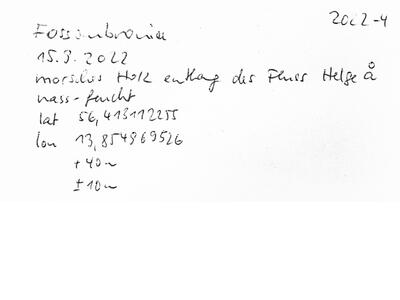 2022-4
Fossombronia
15.9.2022
morsches Holz entlang des Fluss Helge å
nass-feucht
lat 56,413112255
lon 13,854969526
+40m
±10m